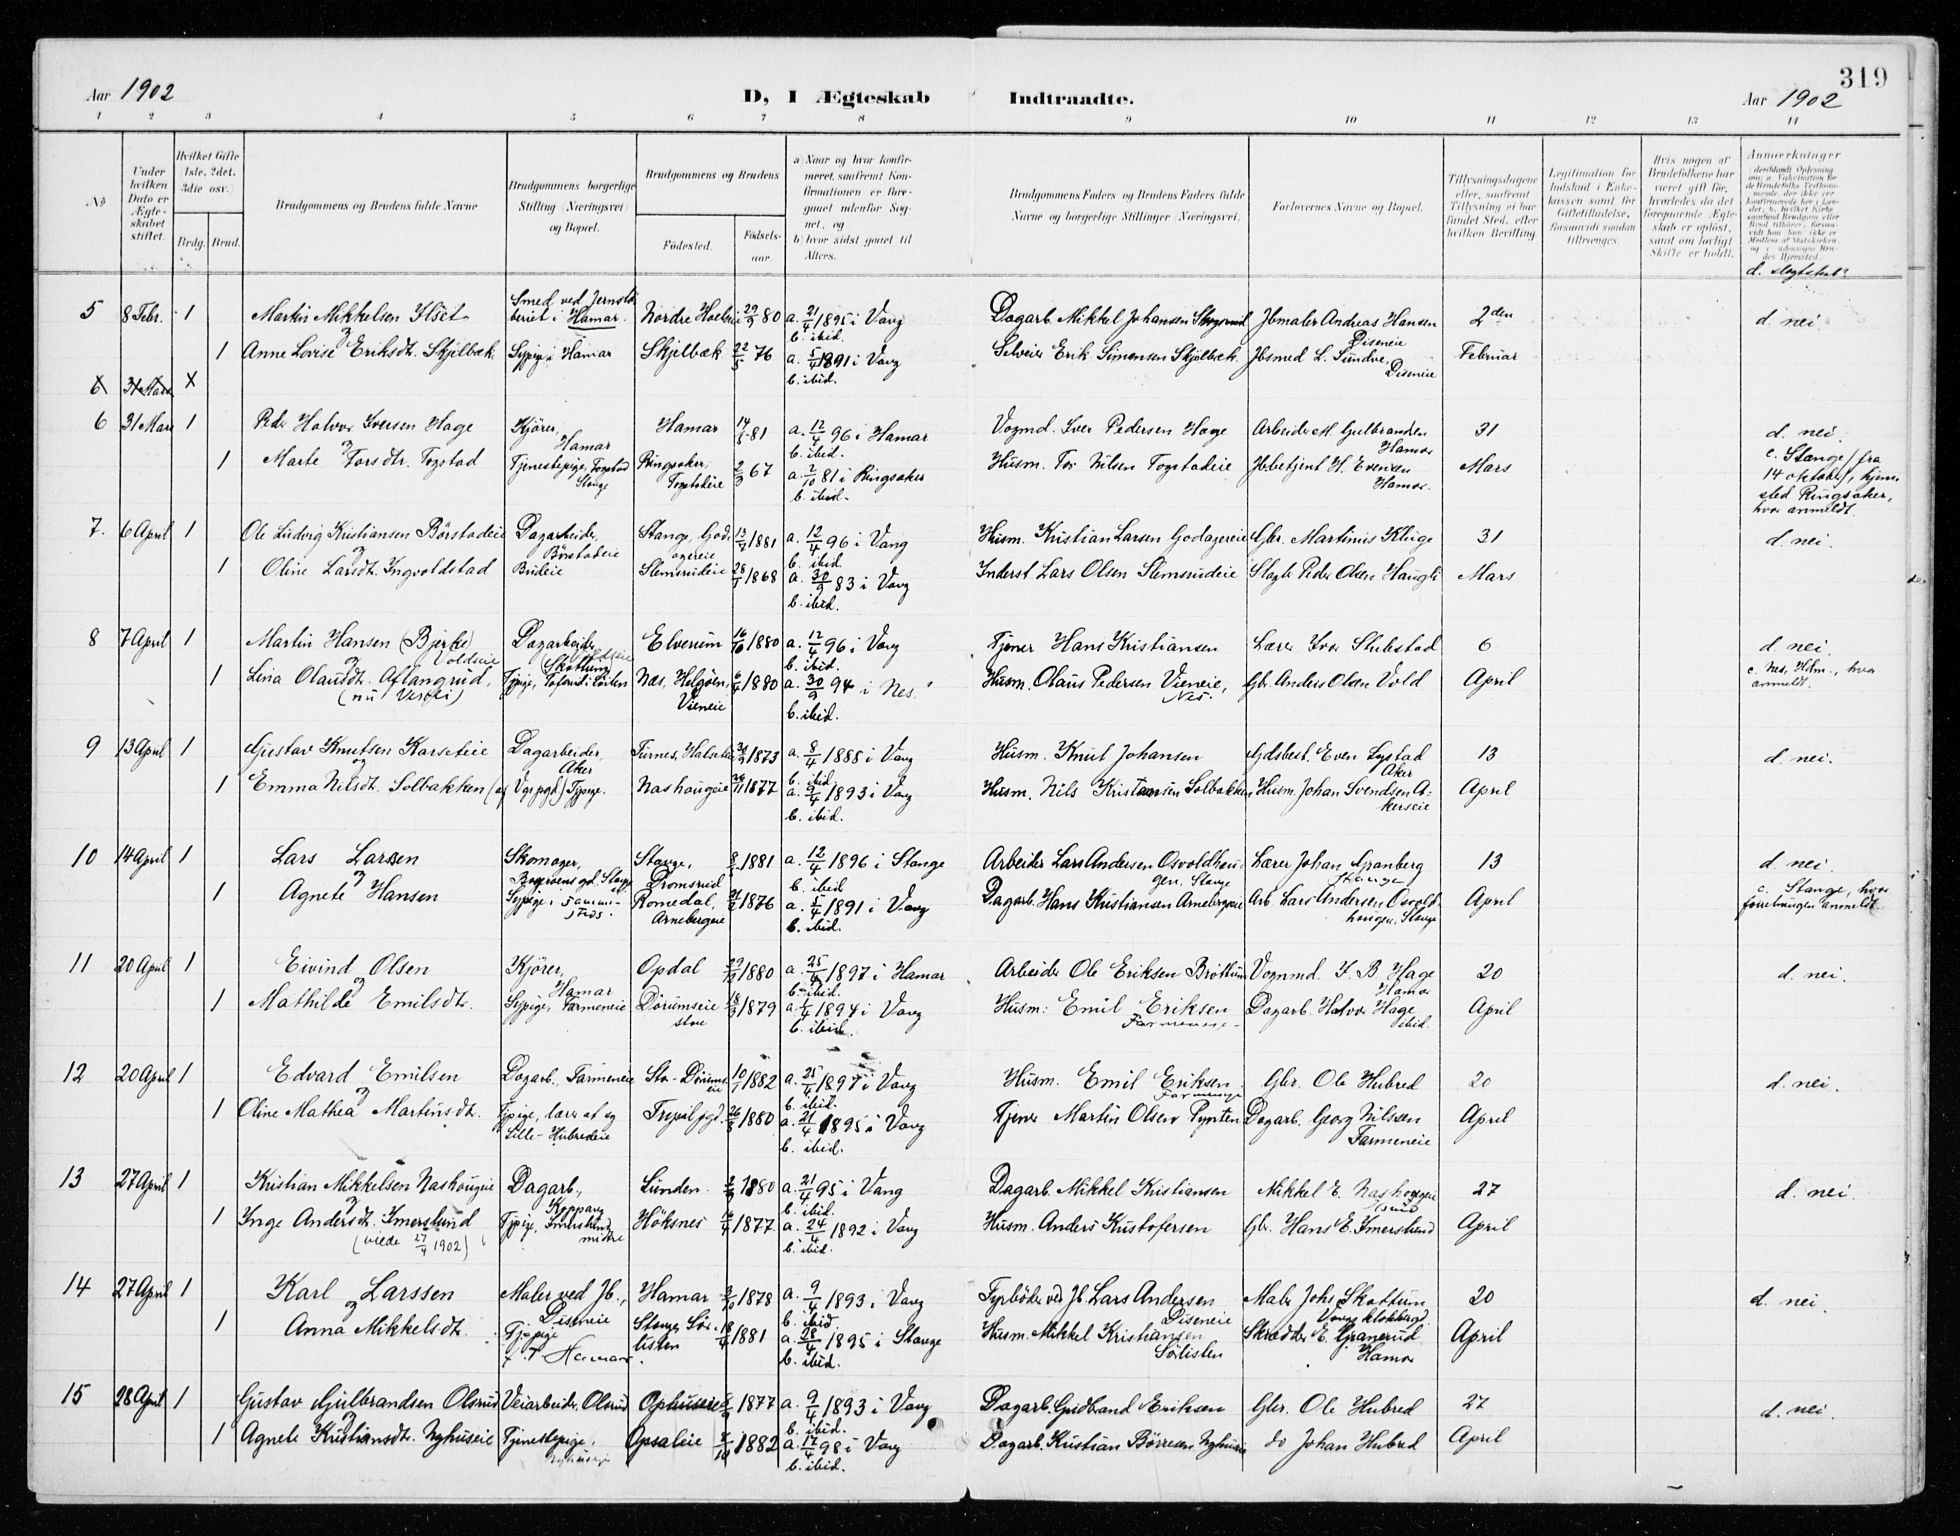 319
Aar 1902 D, I Ægteskab Indtraadte. Aar 1902
1 2 3 4 5 6 7 8 9 10 11 12 13 14
No
Under hvilken Dato er Ægteskabet stiftet.
Hvilket Gifte 1ste, 2det, 3die osv.)
Brdg. Brud.
Brudgommens og Brudens fulde Navne
Brudgommens borgerlige Stilling (Næringsvei) og Bopæl.
Brudgommens og Brudens
Fødested. Fødsels-aar.
a) Naar og hvor konfirmeret, saafremt Konfirmationen er foregaaet udenfor Sognet, og
b) hvor sidst gaaet til Alters.
Brudgommens Faders og Brudens Faders fulde Navne og borgerlige Stillinger (Næringsvei).
Forlovernes Navne og Bopæl.
Tillysningsdagene eller, saafremt Tillysning ei har fundet Sted, efter hvilken Bevilling.
Legitimation for Indskud i Enkekassen samt for Giftetilladelse, forsaavidt saadan tiltrænges.
Hvis nogen af Brudefolkene har været gift før, hvorledes da det foregaaende Ægteskab er opløst, samt om lovligt Skifte er holdt.
Anmærkninger
5 8 Febr. 1 Martin Mikkelsen Ilset Smed ved Jernstøberiet i Hamar. Nordre Hoel 29/9 80 a. 21/4 1895 i Vang b. ibid. Dagarb. Mikkel Johansen Jbmaler Andreas Hansen Diseneie 2den d. nei
og
1 Anne Lovise Eriksdt. Skjelbæk Sypige i Hamar Skjelbæk 22/5 76 a. 5/4 1891 i Vang b. ibid. Selveier Erik Simensen Skjølbæk Jbsmed L. Sundve, Diseneie Februar
6 31 Mars X
6 31 Mars 1 Peder Halvor Iversen Hage Kjører, Hamar Hamar 14/ 81 a. 12/4 96 i Hamar b. ibid. Vogmd. Iver Pedersen Hage Arbeider M. Gulbrandsen Hamar 31 d. nei.
og
1 Marte Torsdtr. Togstad Tjenestepige, Togstad Stange Ringsaker, Togstadeie 2/3 67 a. 2/10 81 i Ringsaker b. ibid. Husm. Tor Nilsen Togstadeie Jbbetjent H. Evensen Hamar. Mars c. Stange (fra 14 oktober), hjemsted Ringsaker, hvor anmeldt.
7. 6 April 1 Ole Ludvig Kristiansen Børstadeie Dagarbeider, Børstadeie Stange, Godagereie 13/ 1881 a. 12/4 96 i Vang b. ibid Husm. Kristian Larsen Godagereie Gbr. Martinus Kluge 31 d. nei.
og
1 Oline Larsdt. Ingvoldstad Budeie Slemsrudeie 28/1 1868 a. 30/9 83 i Vang b. ibid. Inderst Lars Olsen Slemsrudeie Slagter Peder Olsen Haugli Mars
8 7 April 1 Martin Hansen (Bjerke) Voldseie Dagarbeider, Elverum 16/10 1880 a. 12/4 96 i Vang b. ibid. Tjener Hans Kristiansen Lærer Ivar Stubstad 6 d. nei.
og
1 Lina Olausdt. Aflangrud, (nu Vien i) Tjpige, Næs, Helgøen, Vieneie 6/4 1880 a. 30/9 94 i Nes. b. ibid. Husm. Olaus Pedersen Vieneie, Nes. Gbr. Anders Olsen Vold April c. Nes, Hdm., hvor anmeldt.
9 13 April 1 Gustav Knutsen Karseteie Dagarbeider, Aker Furnes, 1873 a. 8/4 1888 i Vang b. ibid Husm. Knut Johansen Gdsbest. Even Lystad Aker 13 d. nei.
og
1 Emma Nilsdt. Solbakken Tjpige. Nashougeie 1877 a. 9/4 1893 i Vang b. ibid. Husm. Nils Kristiansen Solbakken Husm. Johan Svendsen Akerseie April
10 14 April 1 Lars Larsen Skomager, Stange, Dromsrud 1881 a. 12/4 1896 i Stange b. ibid Arbeider Lars Andersen Osvoldhougen, Stange Lærer Johan Granberg Stange 13 d. nei.
og
1 Agnete Hansen Sypige, sammesteds. Romedal, Arnebergeie 1876 a. 5/4 1891 i Vang b. ibid. Dagarb. Hans Kristiansen Arnebergeie Arb Lars Andersen Osvoldhougen, Stange April c. Stange, hvor anmeldt
11 20 April 1 Eivind Olsen Kjører, Hamar Opdal 29/ 1880 a. 25/4 1897 i Hamar b. ibid. Arbeider Ole Eriksen Brøttum Vognmd. I. B Hage Hamar 20 d. nei.
og
1 Mathilde Emilsdt. Sypige, Farmeneie Dørumseie store 18/ 1879 a. 1/4 1894 i Vang b. ibid. Husm. Emil Eriksen Farmeneie Dagarb. Halvor Hage ibid. April
12 20 April 1 Edvard Emilsen Dagarb., Farmeneie Str. Dørumseie 10/ 1882 a. 25/4 1897 i Vang b. ibid. Husm. Emil Eriksen Farmeneie Gbr. Ole Hubred 20 d. nei.
og
1 Oline Mathea Martinsdt. Tjpige, Lille-Hubredeie 26/ 1880 a. 21/4 1895 i Vang b. ibid. Tjener Martin Olsen Pynten Dagarb. Georg Nilssen Farmeneie April
13 27 April 1 Kristian Mikkelsen Nashougeie Dagarb., Lunden. 1880 a. 21/4 95 i Vang b. ibid. Dagarb. Mikkel Kristiansen Mikkel E. Nashougeie 27 d. nei.
og
1 Inge Andersdt. Imerslund (viede 27/4 1902) Tjpige, Imerslund midtre Høksnes 1877 a. 24/4 1892 i Vang b. ibid. Husm. Anders Kristofersen Gbr. Hans E. Imerslund April
14 27 April 1 Karl Larssen Maler ved Jb., Diseneie Hamar 1878 a. 9/4 1893 i Vang b. ibid. Fyrbøder ved Jb. Lars Andersen Diseneie Maler Johs Skattum 20 d. nei.
og
1 Anna Mikkelsdt. Tjpige Hamar Stange, Sørlisten 18/4 1881 a. 28/4 1895 i Stange b. ibid. Husm. Mikkel Kristiansen Sørlisten Skrædder E. Granerud Hamar April
15 28 April 1 Gustav Gulbrandsen Olsrud Veiarbeider, Olsrud Ophuseie 1877 a. 9/4 1893 i Vang b. ibid. Dagarb. Gudbrand Eriksen Gbr. Ole Hubred 27 d. nei.
og
1 Agnete Kristiansdt. Nyhuseie Tjenestepige, Nyhuseie Opsaleie 1882 a. 17/4 98 i Vang b. ibid. Dagarb. Kristian Børresen Nyhuseie do Johan Hubred April